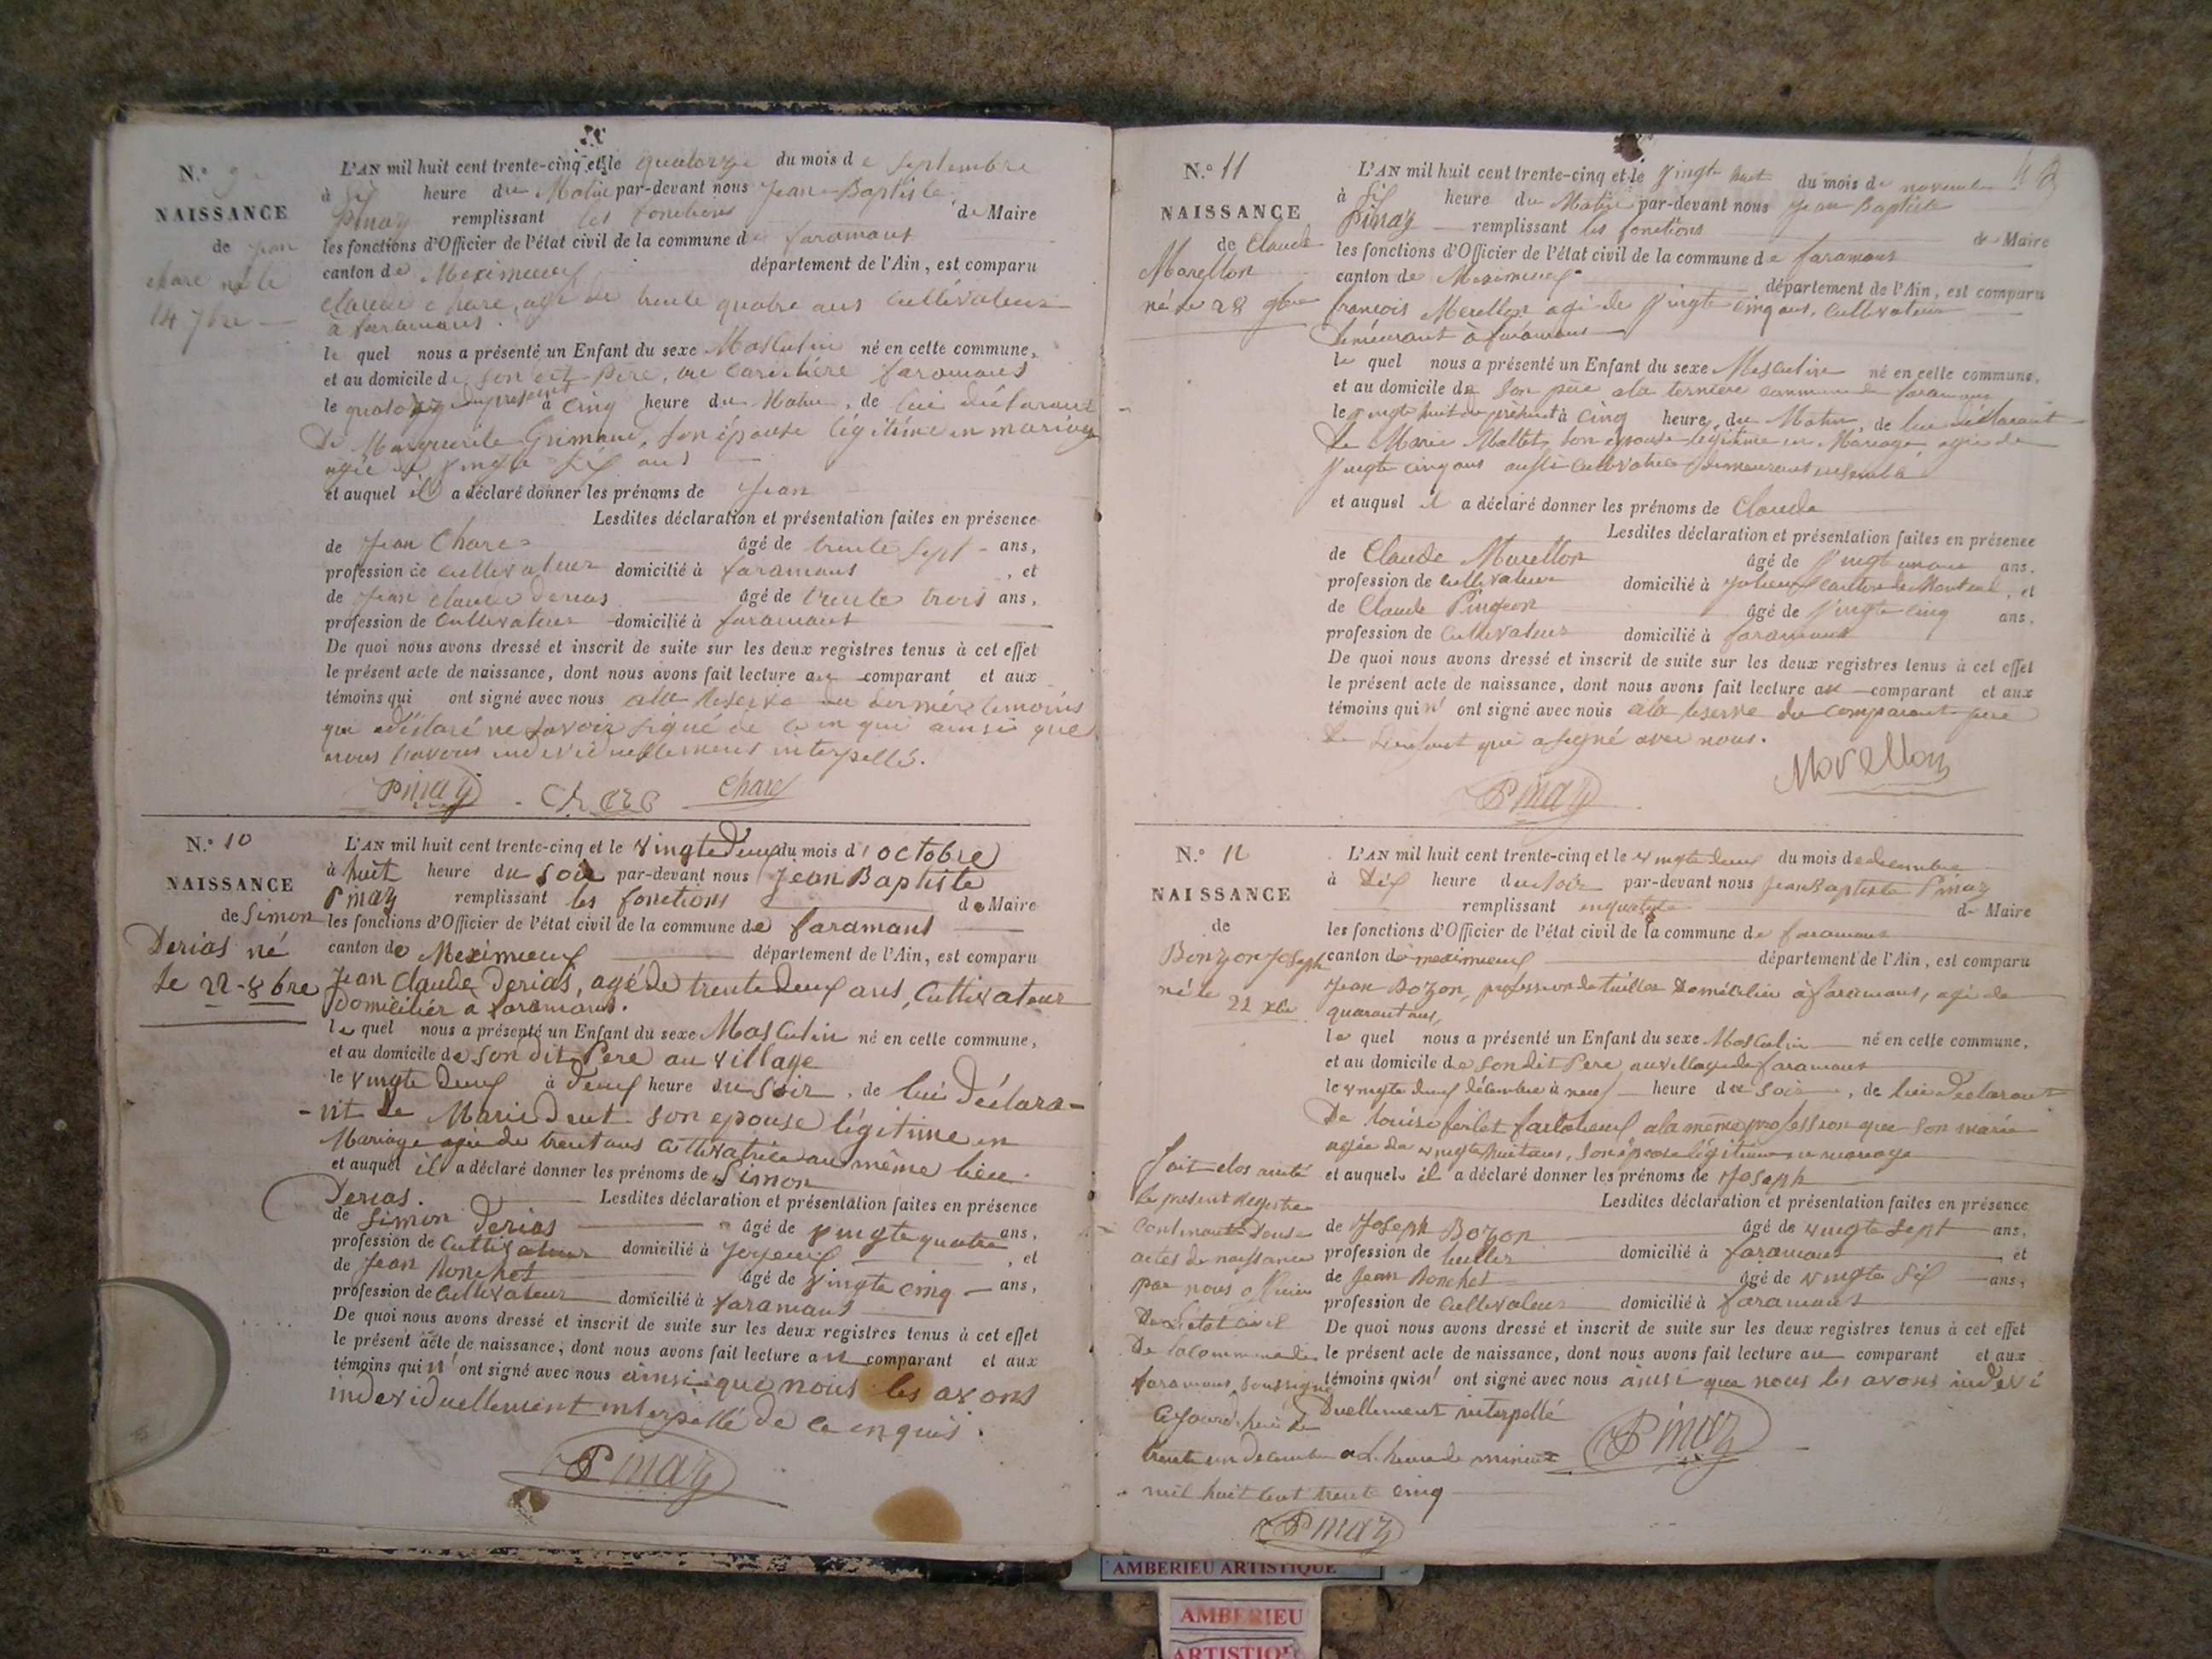 N.° 9
NAISSANCE
de Jean
chare né le
14 7bre
L'AN mil huit cent trente-cinq et le quatorze du mois de Septembre
à Six heure du Matin par-devant nous Jean-Baptiste
Pinaz remplissant les fonctions de Maire
les fonctions d'Officier de l'état civil de la commune de faramans
canton de Meximieux département de l'Ain, est comparu
Claude chare, agé de trente quatre ans Cultivateur
à faramans.
le quel nous a présenté un Enfant du sexe Masculin né en cette commune,
et au domicile de son dit Pere, au faramans
le quatorze du present à Cinq heure du Matin, de lui déclarant
De Marguerite Grimand, Son épouse légitime en mariage
agée de vingte Six ans
et auquel il a déclaré donner les prénoms de Jean
Lesdites déclaration et présentation faites en présence
de Jean Chare âgé de trente Sept ans,
profession de Cultivateur domicilié à faramans, et
de Jean Claude Derias âgé de trente trois ans,
profession de Cultivateur domicilié à faramans
De quoi nous avons dressé et inscrit de suite sur les deux registres tenus à cet effet
le présent acte de naissance, dont nous avons fait lecture au comparant et aux
témoins qui ont signé avec nous alla reserve du dernier temoins
qui a déclaré ne savoir signé de ce enqui ainsi que
nous l'avons individuellement interpellé.
Pinaz Chare Chare
N.° 10
NAISSANCE
de Simon
Derias né
le 22 - 8bre
L'AN mil huit cent trente-cinq et le vingte Deux du mois d'octobre
à huit heure du Soir par-devant nous Jean Baptiste
Pinaz remplissant les fonctions de Maire
les fonctions d'Officier de l'état civil de la commune de faramans
canton de Meximieux département de l'Ain, est comparu
Jean Claude Derias, agé de trente deux ans, Cultivateur
Domicilier à faramans.
le quel nous a présenté un Enfant du sexe Masculin né en cette commune,
et au domicile de son dit Pere au village
le vingte Deux à Deux heure du Soir, de lui Déclara-
-nt de Marie Drut Son epouse légitime en
Mariage agée de trent ans Cultivatrice au même lieu
et auquel il a déclaré donner les prénoms de Simon
Derias. Lesdites déclaration et présentation faites en présence
de Simon Derias âgé de vingte quatre ans,
profession de Cultivateur domicilié à Joyeux, et
de Jean Ronchet âgé de vingte cinq ans,
profession de Cultivateur domicilié à faramans
De quoi nous avons dressé et inscrit de suite sur les deux registres tenus à cet effet
le présent acte de naissance, dont nous avons fait lecture au comparant et aux
témoins qui n'ont signé avec nous ainsi que nous les avons
individuellement interpellé de ce enquis.
Pinaz
N.° 11
NAISSANCE
de Claude
Morellon
né le 28 9bre
L'AN mil huit cent trente-cinq et le vingte huit du mois de novembre
à Six heure du Matin par-devant nous Jean Baptiste
Pinaz remplissant les fonctions de Maire
les fonctions d'Officier de l'état civil de la commune de faramans
canton de Meximieux département de l'Ain, est comparu
françois Morellon agé de vingte cinq ans, Cultivateur
Demeurant à faramans
le quel nous a présenté un Enfant du sexe Masculin né en cette commune,
et au domicile de Son père a la commune de faramans
le vingte huit du présent à Cinq heure du Matin, de lui déclarant
De Marie Mallet Son epouse légitime en Mariage, agée de
vingte cinq ans aussi Cultivatrice Demeurant ensemble
et auquel il a déclaré donner les prénoms de Claude
Lesdites déclaration et présentation faites en présence
de Claude Morellon âgé de vingt ans.
profession de Cultivateur domicilié à Joyeux canton de Montluel, et
de Claude Pingeon âgé de vingte cinq ans.
profession de Cultivateur domicilié à faramans
De quoi nous avons dressé et inscrit de suite sur les deux registres tenus à cet effet
le présent acte de naissance, dont nous avons fait lecture au comparant et aux
témoins qui n'ont signé avec nous ala reserve du comparant père
De l'enfant qui a signé avec nous.
Morellon
Pinaz
N.° 12
NAISSANCE
de
Bonzon Joseph
né le
22 Xbre
L'AN mil huit cent trente-cinq et le vingte deux du mois de decembre
à Dix heure du Soir par-devant nous Jean Baptiste Pinaz
remplissant de Maire
les fonctions d'Officier de l'état civil de la commune de faramans
canton de meximieux département de l'Ain, est comparu
Jean Bozon, profession de tuillier Domicilier à faramans, agé de
quarant ans,
le quel nous a présenté un Enfant du sexe Masculin né en cette commune,
et au domicile de Son dit Pere au village de faramans
le vingte deux décembre à neuf heure du Soir, de lui Declarant
De Louise ferlet a la même profession que Son marie
agée de vingte huit ans, Son épouse légitime en mariage
et auquel il a déclaré donner les prénoms de Joseph
Lesdites déclaration et présentation faites en présence
de Joseph Bozon âgé de vingte Sept ans,
profession de tuillier domicilié à faramans et
de Jean Ronchet âgé de vingte Six ans,
profession de Cultivateur domicilié à faramans
De quoi nous avons dressé et inscrit de suite sur les deux registres tenus à cet effet
le présent acte de naissance, dont nous avons fait lecture au comparant et aux
témoins qui n'ont signé avec nous ainsi que nous les avons indevi
Duellement interpellé
Pinaz
fait clos arrêté
le présent registre
contenant Douse
actes de naissance
par nous officier
De l'état civil
De la commune de
faramans soussigné
Ajourd'hui le
trente un decembre a L'heure de minuit
mil huit cent trente cinq
Pinaz
AMBERIEU ARTISTIQUE
AMBERIEU
ARTISTIQUE